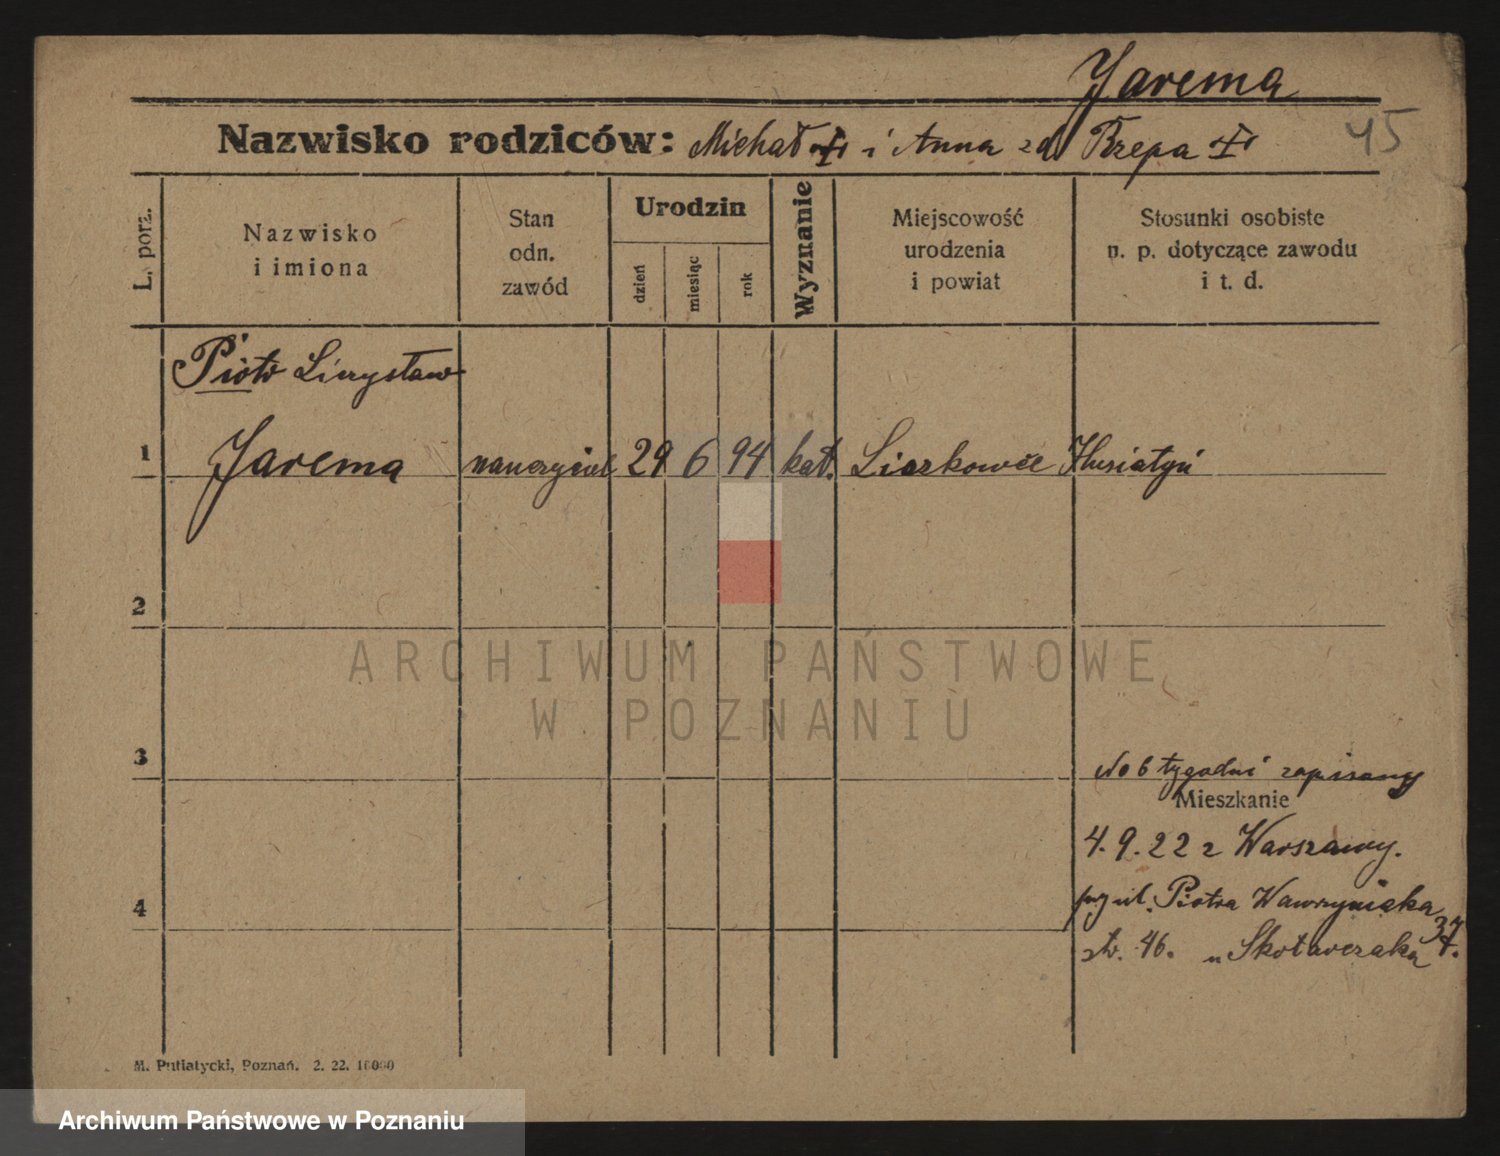 Jarema
45
Nazwisko rodziców: Michał i Anna zd Rzepa
L. porz.
Nazwisko i imiona
Stan odn. zawód
Urodzin
dzień
miesiąc
rok
Wyznanie
Miejscowość urodzenia i powiat
Stosunki osobiste n. p. dotyczące zawodu i t. d.
Piotr
1 Jarema nauczyciel 29 6 94 kat. Liczkowce Husiatyń
2
ARCHIWUM PAŃSTWOWE
W POZNANIU
3
No 6 tygodni zapisany
Mieszkanie
4. 9. 22 z Warszawy.
przy ul. Piotra Wawrzyniaka 37.
4
46. u Skotarczaka
M. Putiatycki, Poznań. 2. 22. 10000
Archiwum Państwowe w Poznaniu